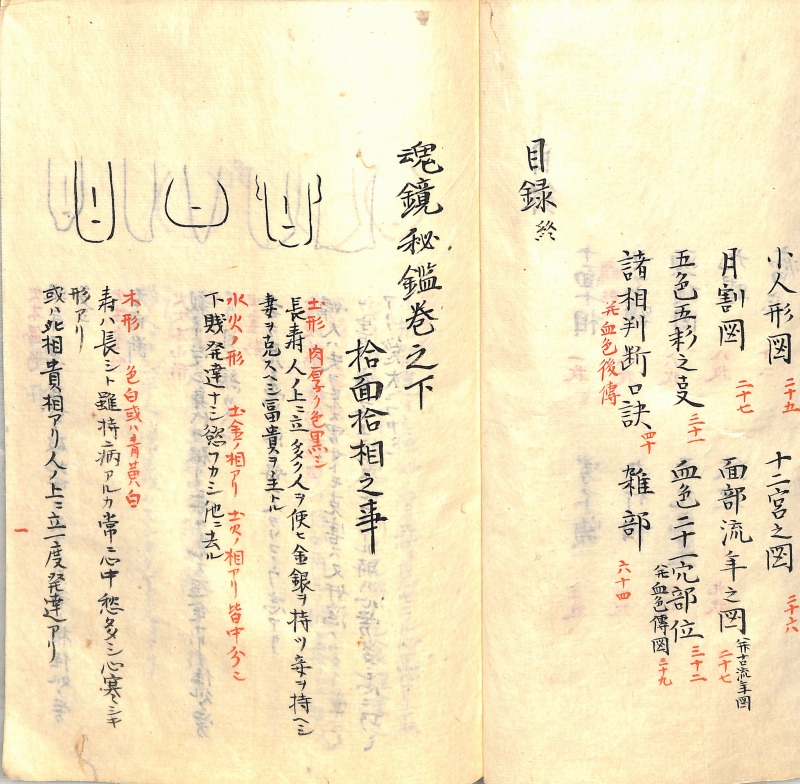 小人形図 二十五 十二宮之図 二十六
月割図 二十七 面部流年之図 并古流年図 二十七
五色五彩之事 三十一 血色二十一穴部位 三十二 并血色傳図 三十九
諸相判断口訣 并血色後傳 四十 雑部 六十四
目録終
魂鏡秘鑑巻之下
拾面拾相之事
土形 肉厚ク色黒シ
長寿人ノ上ニ立多ク人ヲ使ヒ金銀ヲ持ツ妾ヲ持ヘシ
妻ヲ克スヘシ冨貴ヲ主トル
水火ノ形 土金ノ相アリ 土火ノ相アリ 皆中分ニ
下賎発達ナシ慾フカシ池ニ去ル
木形 色白或ハ青黄白
寿ハ長シト雖持病アルカ常ニ心中愁多シ心寒ミシキ
形アリ
或ハ此相貴相アリ人ノ上ニ立一度発達アリ
一